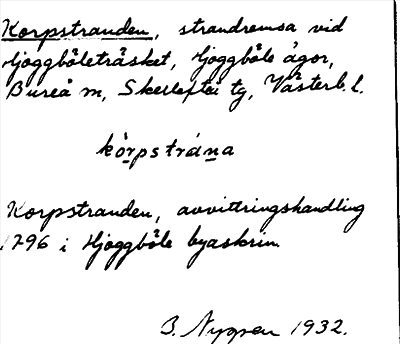 Korpstranden, strandremsa vid
Hjoggböleträsket, Hjoggböle ågor,
Bureå sn, Skellefteå tg, Västerb. l.
kòrpstrána
Korpstranden, avvittringshandling
1796 i Hjoggböle byaskrin
B. Nygren 1932.